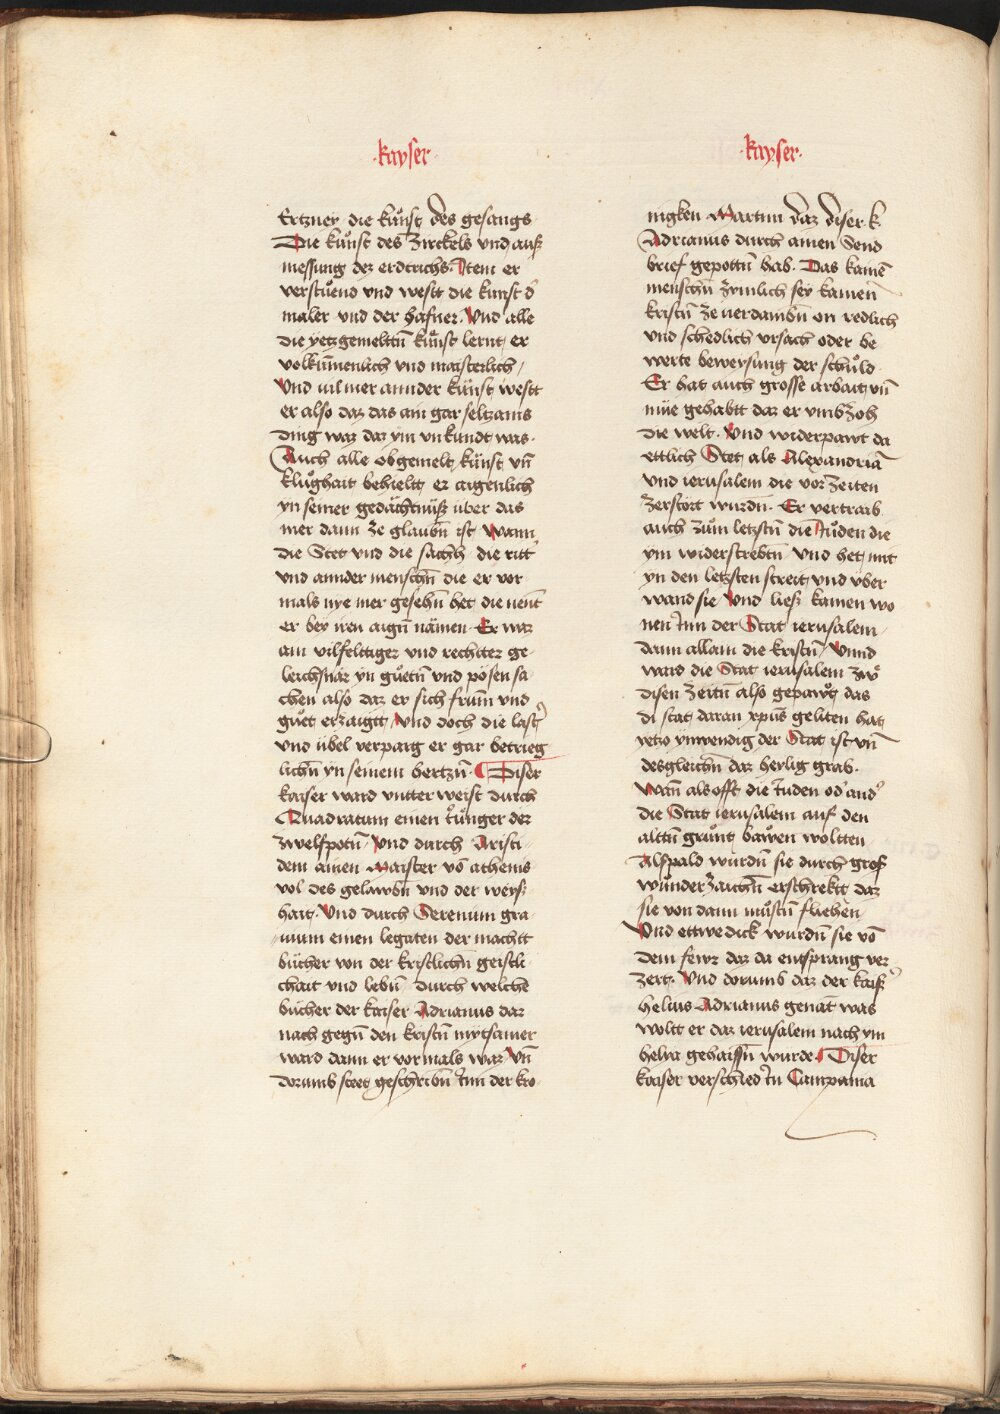 ·kayser·
Ertzney die kůnst des gesangs
Die kůnst des Zirckels vnd auß
messung dez erdtrichs· Item er
verstůend vnd westt die kunst d̕
maler vnd der hafner· Vnd alle
die yetzgemelttn̄ kůnst lernt er
volkūmenlich vnd maisterlich /
Vnd uil mer annder künst westt
er also daz das ain gar seltzams
ding waz daz ym vnkundt was·
Auch alle obgemelt künst vn̄
klůghait behieltt er aigenlich
yn seiner gedächtnüß über das
mer dann ze glaubn̄ ist· Wann
die Stet vnd die sachh die ritt̕
vnd annder menschn̄ die er vor
mals nye mer gesehn̄ het die nent
er bey iren aign̄ nämen· Er waz
ain vilfelttiger vnd rechtter ge-
leichsnär yn gůetn̄ vnd pösen sa-
chen also daz er sich frum̄ vnd
gůet erzaigtt / Vnd doch die last̕
vnd übel verparg er gar betrieg
lichn̄ yn seinem hertzn̄· Diser
kaiser ward vntter weist durch
Quadratum einen iu̇nger dez
zwelfpotn̄ Vnd durch Aristi-
dem ainen Maister vō athenis
vol des gelawbn̄ vnd der weys-
hait· Vnd durch Serenum gra-
nium einen legaten der machtt
bücher von der kristlichn̄ geistli-
chait vnd lebn̄ durch welche
bücher der kaiser Adrianus daz
nach gegn̄ den kristn̄ mytsamer
ward dann er vormals waz Vn̄
dorumb steet geschribn̄ inn der kro-
·kayser·
nigken Martini daz diser k·
Adrianus durch ainen Send
brief gepottn̄ hab· Das kainē
menschn̄ zymlich sey kainen
kristn̄ ze uerdambn̄ on redlich
vnd schedlich vrsach oder be
werte beweysung der schůld
Er hat auch grosse arbait vn̄
müe gehabtt daz er vmbzoh
die welt· Vnd widerpawt da
ettlich Stet als Alexandriā
vnd ierusalem die vorzeiten
zerstört wurdn̄· Er vertraib
auch zům letzstn̄ die Iůden die
ym widerstrebtn̄ Vnd het mit
yn den letzsten streit vnd über
wand sie Vnd ließ kainen wo
nen inn der Stat ierusalem
dann allain die kristn̄ / Vnnd
ward die Stat ierusalem zwͦ
disen zeitn̄ also gepawt das
di stat daran xp̄us geliten hat
yetzo ynwendig der Stat ist vn̄
desgleichn̄ daz heylig grab·
Wan̄ als offt die iuden od̕ and̕
die Stat ierusalem auf den
alttn̄ grůnt bawen woltten
Alspald wurdn̄ sie durch groß
wůnderzaichn̄ erschrektt daz
sie von dann můstn̄ fliehen
Vnd ettwedick wurdn̄ sie vō
dem fewr daz da entsprang ver
zert· Vnd dorumb daz der kaiß̕
helius Adrianus genāt was
woltt er daz ierusalem nach ym
helya gehaissn̄ wurde· Diser
kaiser verschied in Campania